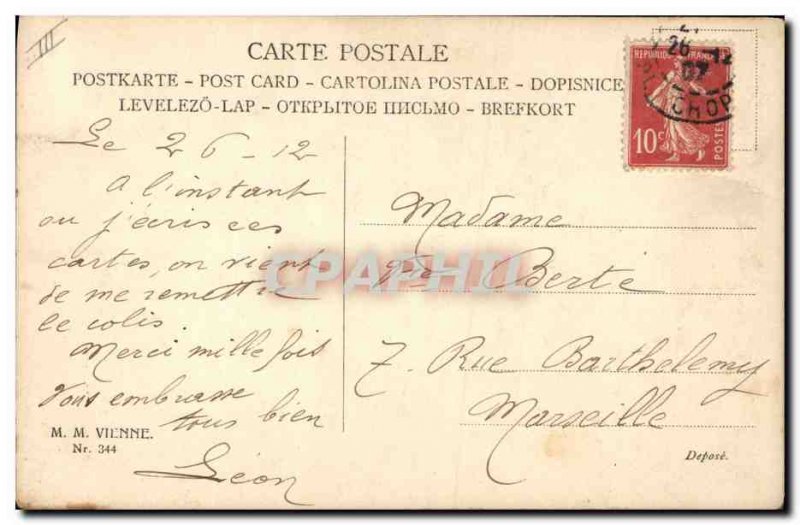 III
CARTE POSTALE
POSTKARTE – POST CARD – CARTOLINA POSTALE – DOPISNICE
LEVELEZŐ-LAP – ОТКРЫТОЕ ПИСЬМО – BREFKORT
REPUBLIQUE FRANÇ
26 -12
07
CHOP
10c
POSTES
Le 26-12
A l'instant
ou j'écris ces
cartes, on vient
de me remettre
ce colis.
Merci mille fois
Vous embrasse
tous bien
Léon
M. M. VIENNE.
Nr. 344
Madame
Berté
7. Rue Barthelemy
Marseille
Deposé.
CPAPHIL